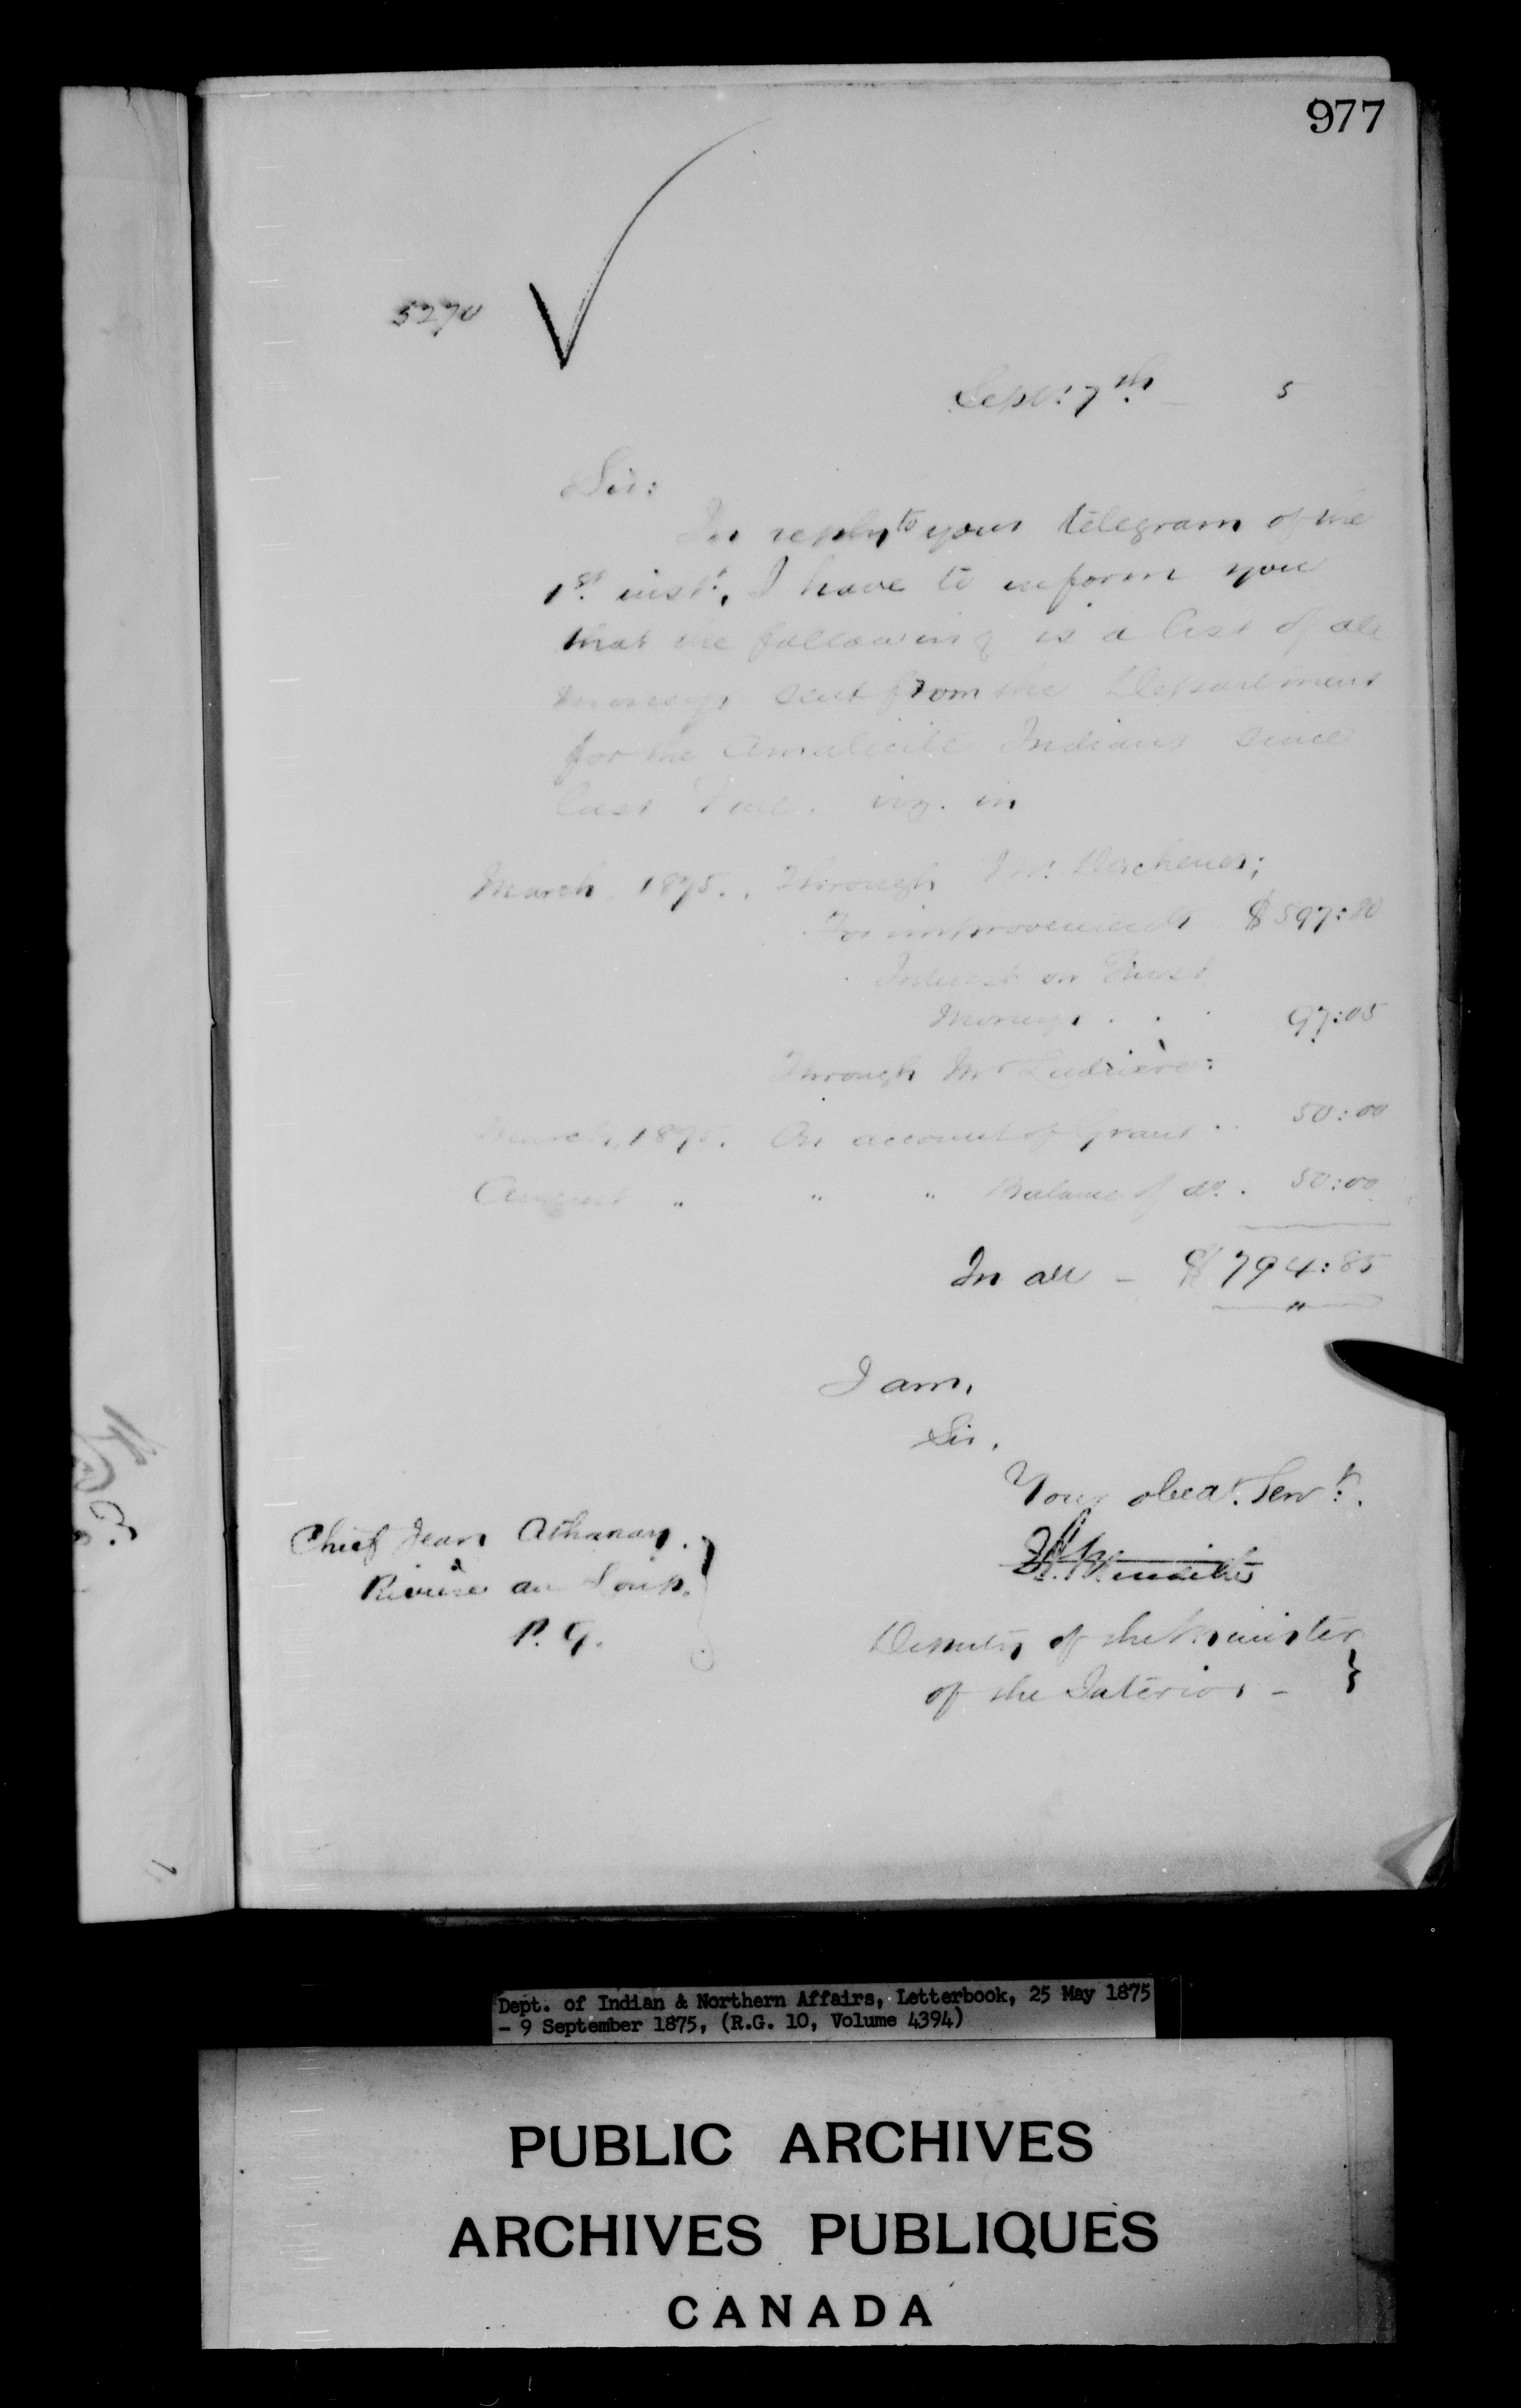 977
5270
Sept: 7th 5
Sir:
In reply to your telegram of the
1st inst., I have to inform you
that the following is a list of all
moneys sent from the Department
for the Amalicite Indians since
last Fall. viz. in
March, 1875. Through Mr.
For improvements $597:80
Interest on Trust
Moneys . . . 97:05
Through Mr
March, 1875. On account of grant .. 50:00
August " " " Balance of do. 50:00
In all - $794:85
I am,
Sir,
Your obedt. Servt.
Chief Jean Athanas.
Rivière du Loup.
P. Q.
Deputy of the Minister
of the Interior -
Dept. of Indian & Northern Affairs, Letterbook, 25 May 1875
- 9 September 1875, (R.G. 10, Volume 4394)
PUBLIC ARCHIVES
ARCHIVES PUBLIQUES
CANADA